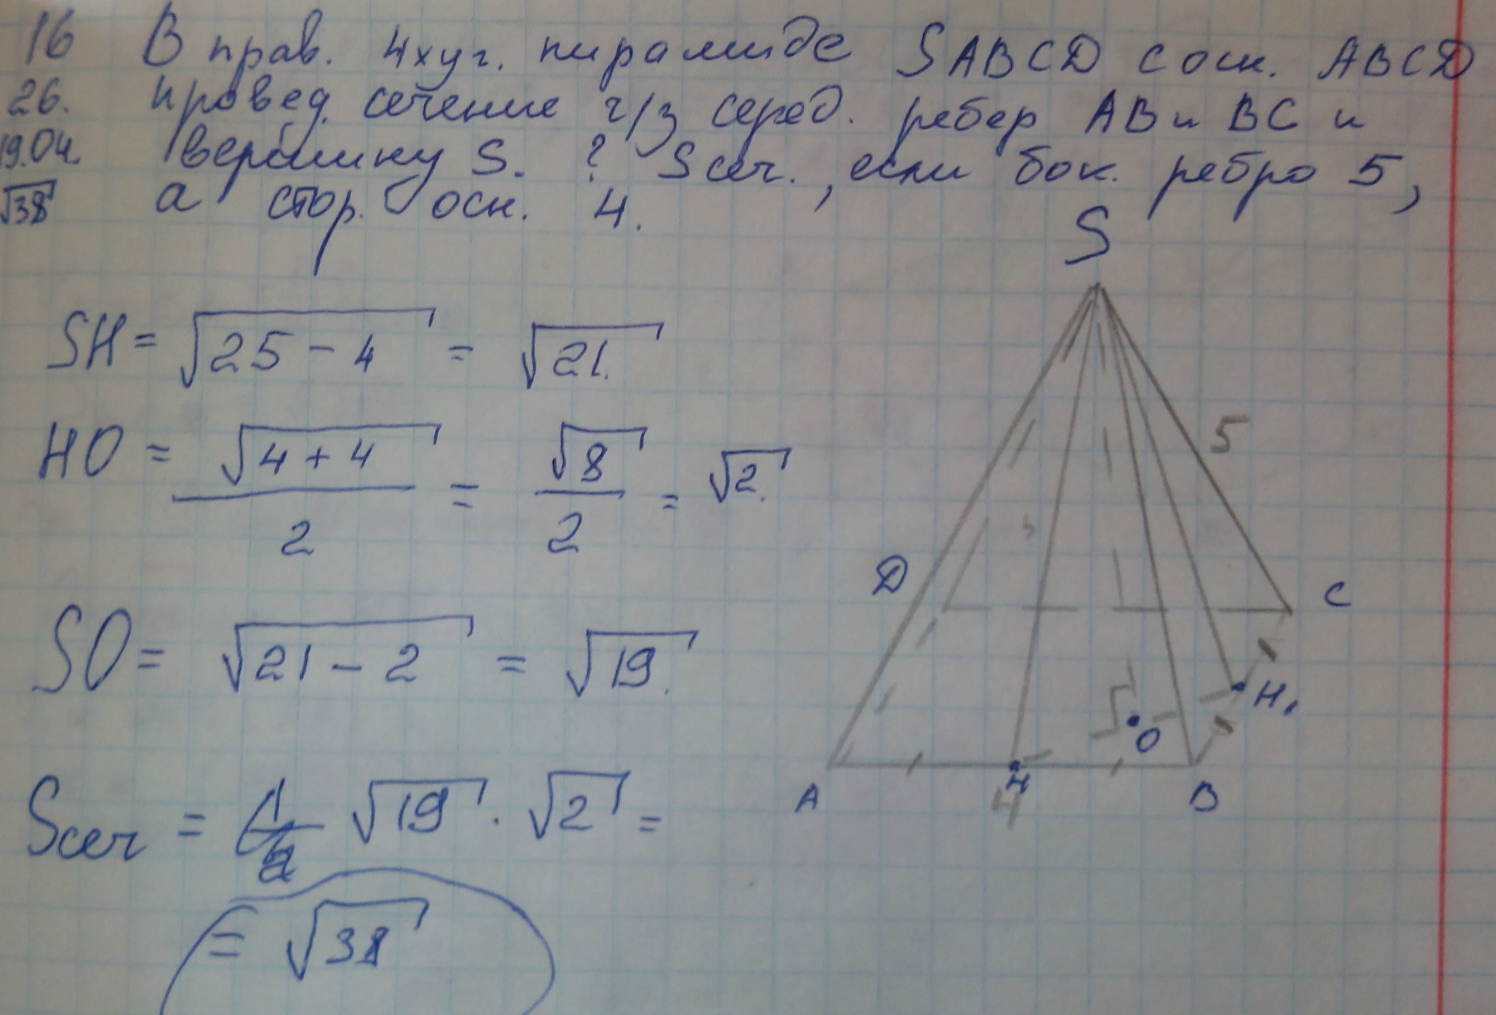 16 В прав. 4хуг. пирамиде SABCD с осн. ABCD
26. провед. сечение ч/з серед. ребер AB и BC и
19.04. вершину S. ? Sсеч., если бок. ребро 5,
√38 а стор. осн. 4.
S
SH = √25 - 4 = √21.
5
HO = √4 + 4 / 2 = √8 / 2 = √2.
D
C
SO = √21 - 2 = √19.
H₁
O
A
H
B
4
Sсеч = √19 · √2 =
= √38